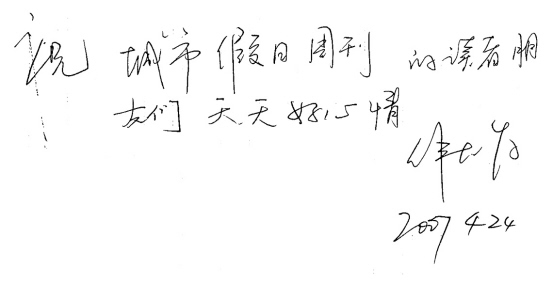 祝 城市假日周刊 的读者朋
友们 天天好心情
2007 4.24